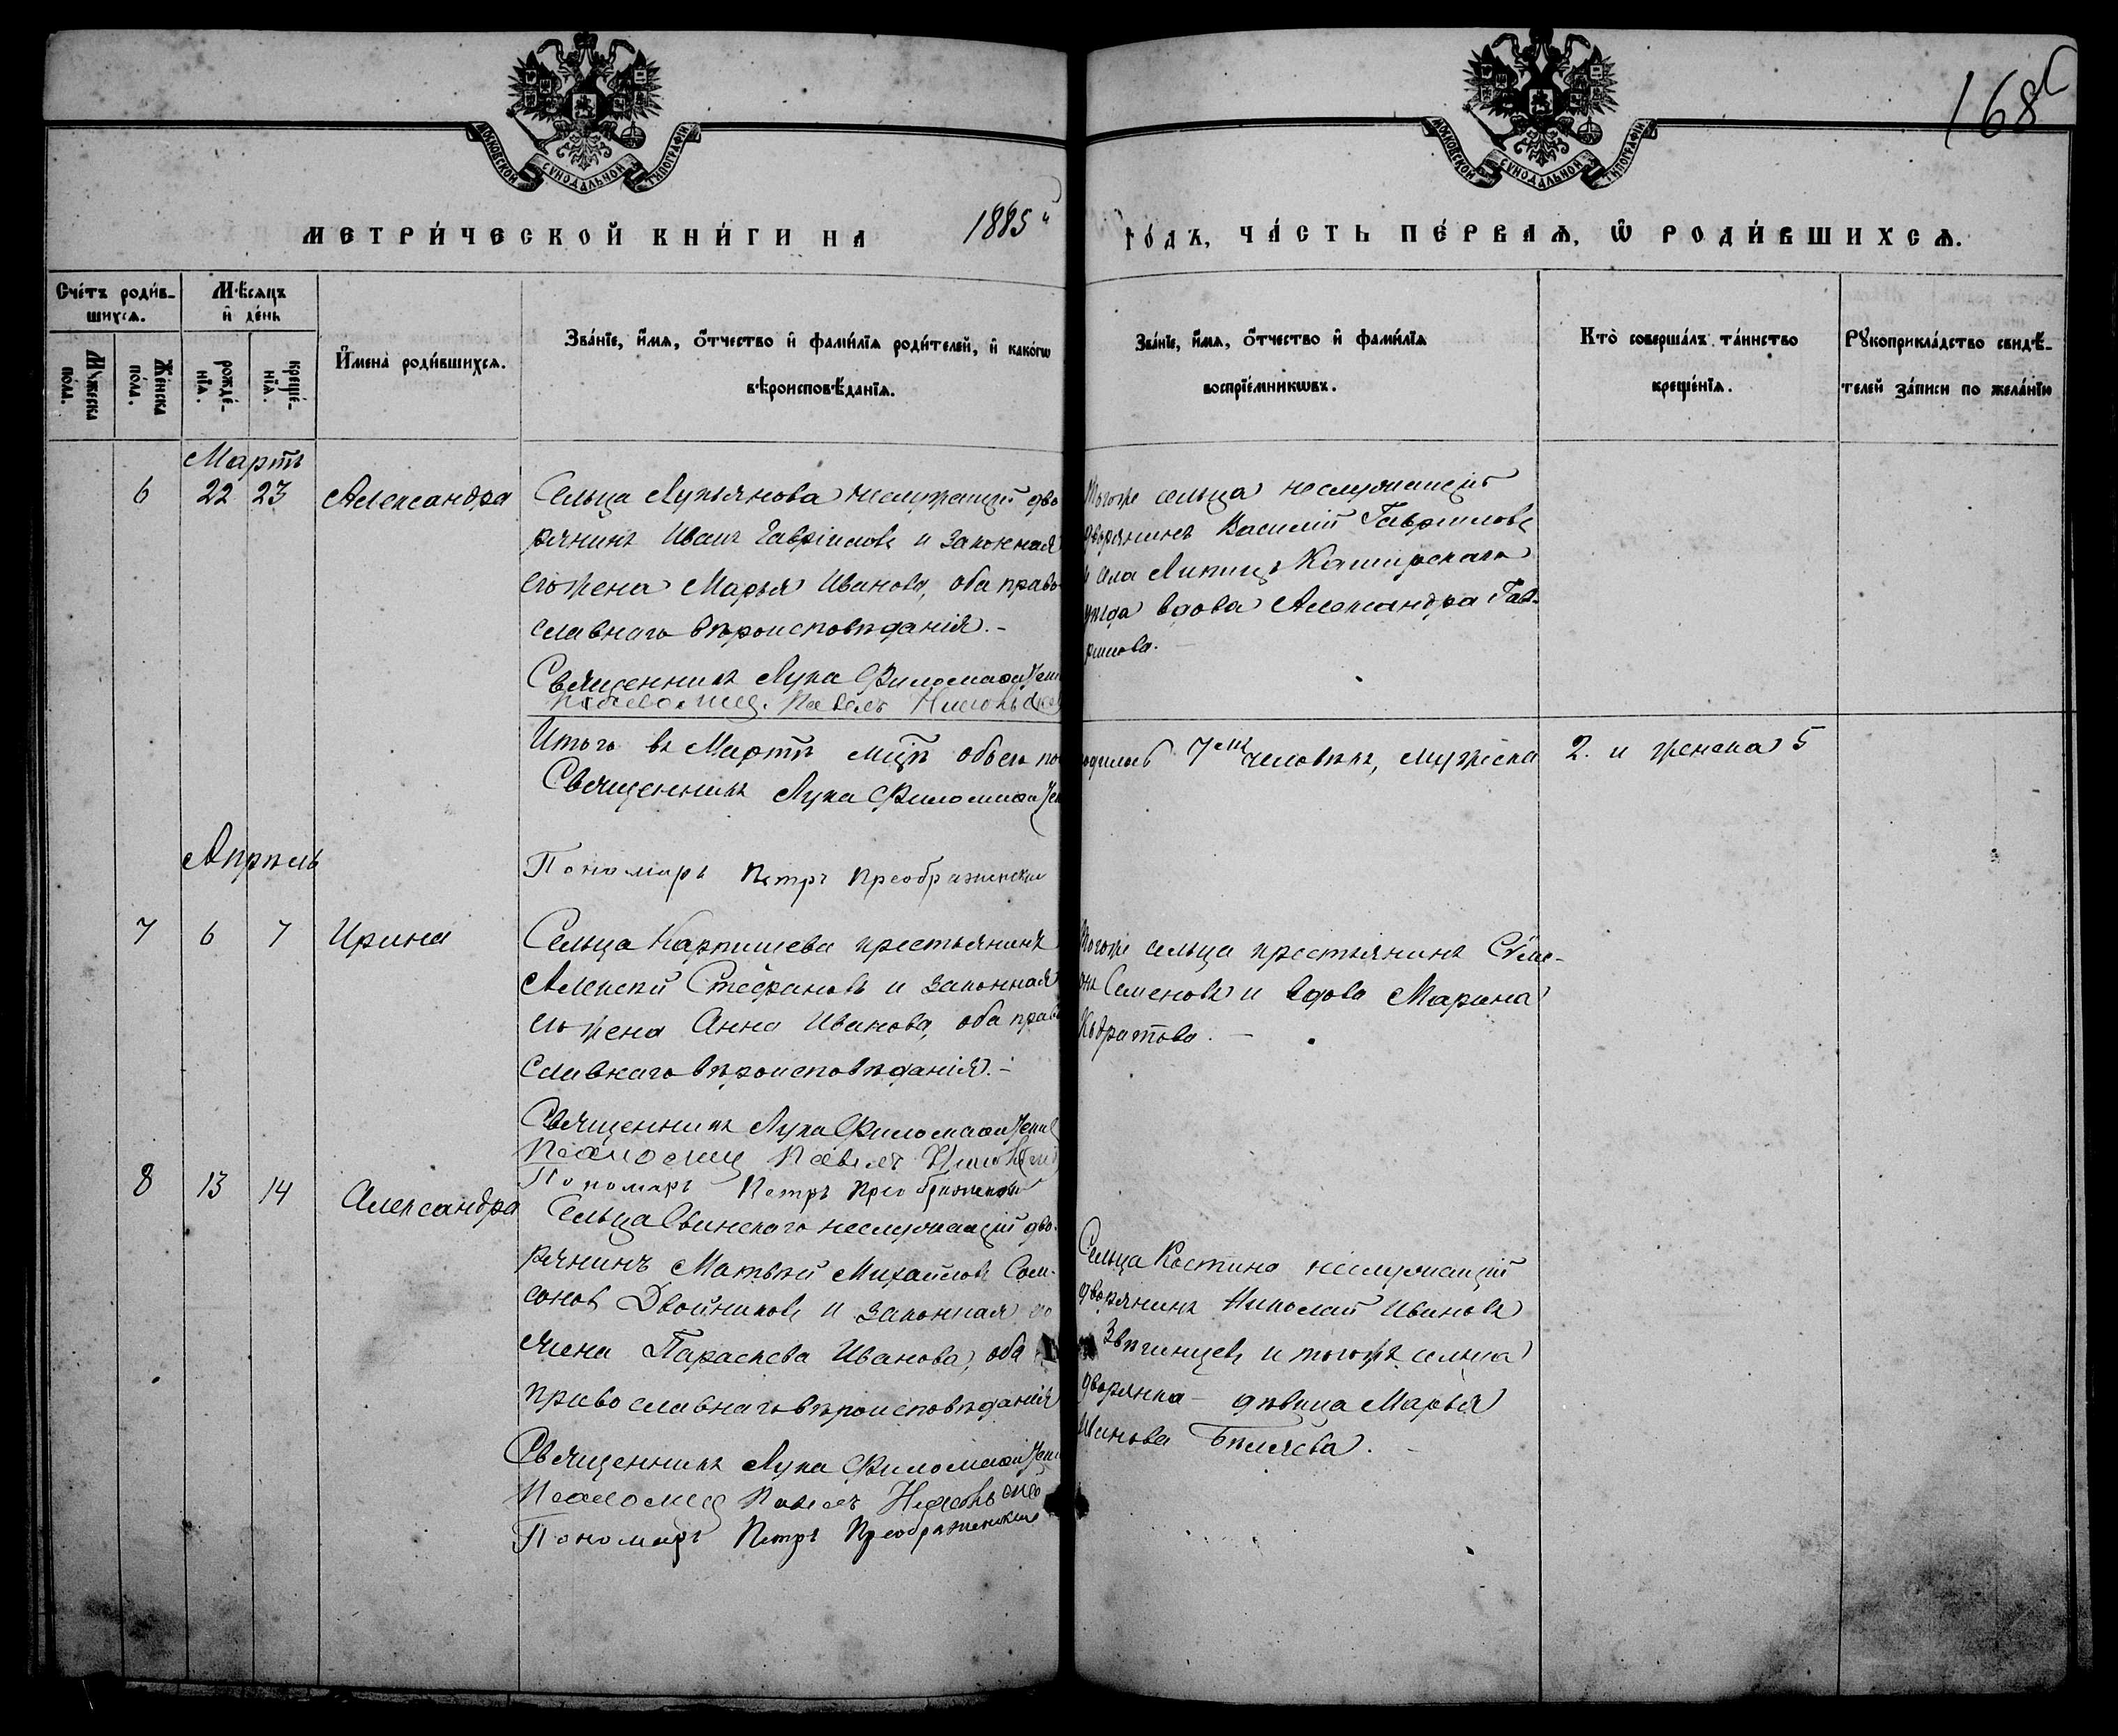 168
МОСКОВСКОЙ СѴНОДАЛЬНОЙ ТИПОГРАФІИ
МОСКОВСКОЙ СѴНОДАЛЬНОЙ ТИПОГРАФІИ
МЕТРИ́ЧЕСКОЙ КНИ́ГИ НА 1885 го́дъ, ЧА́СТЬ ПЕ́РВАѦ, Ѡ҆ РОДИ́ВШИХСѦ.
Сче́тъ роди́в-
шихсѧ.
Мꙋ́жеска по́ла.
Же́нска по́ла.
Мѣ́сѧцъ и҆ де́нь
рожде́-нїѧ.
креще́-нїѧ.
И҆мена̀ роди́вшихсѧ.
Зва́нїе, и҆́мѧ, ѻ҆́тчество и҆ фами́лїѧ роди́телей, и҆ како́гѡ
вѣроисповѣ́данїѧ.
Зва́нїе, и҆́мѧ, ѻ҆́тчество и҆ фами́лїѧ
воспрїе́мникѡвъ.
Кто̀ соверша́лъ та́инство
креще́нїѧ.
Рꙋкоприкла́дство свидѣ́-
телей за́писи по жела́нїю
Мартъ
6 22 23 Александра
Сельца Лукьянова неслужащій дво
рянинъ Иванъ Гавріиловъ и законная
его жена Марья Иванова, оба право-
славнаго вѣроисповѣданія.-
Священникъ Лука
Псаломщ. Павелъ
Того же сельца неслужащій
дворянинъ Василій Гавриловъ
и села Липицъ Каширскаго
уѣзда вдова Александра Гав-
рилова.
Итого въ Мартѣ мцѣ обоего по
родилось 7 человѣкъ, мужеска 2. и женска 5
Священникъ Лука
Апрѣль
Пономарь Петръ Преображенскій
7 6 7 Ирина
Сельца Карпищева крестьянинъ
Алексѣй Стефановъ и законная
его жена Анна Иванова, оба право
славнаго вѣроисповѣданія.-
Священникъ Лука
Псаломщ Павелъ
Пономарь Петръ Преображенскій
Того же сельца крестьянинъ Симе-
онъ Семеновъ и вдова Марина
Кодратова. -
8 13 14 Александра
Сельца Свинскаго неслужащій дво-
рянинъ Матвѣй Михайловъ Сам-
соновъ Двойниковъ и законная его
жена Параскева Иванова, оба
православнаго вѣроисповѣданія
Священникъ Лука
Псаломщ Павелъ
Пономарь Петръ Преображенскій
Сельца Костина неслужащій
дворянинъ Николай Ивановъ
Звѣгинцевъ и тогожъ сельца
дворянка - дѣвица Марья
Иванова Бѣляева.